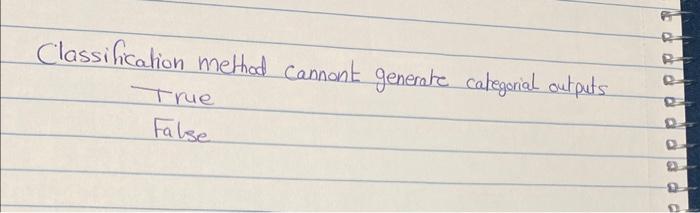 Classification method cannont generate categorial outputs
True
False